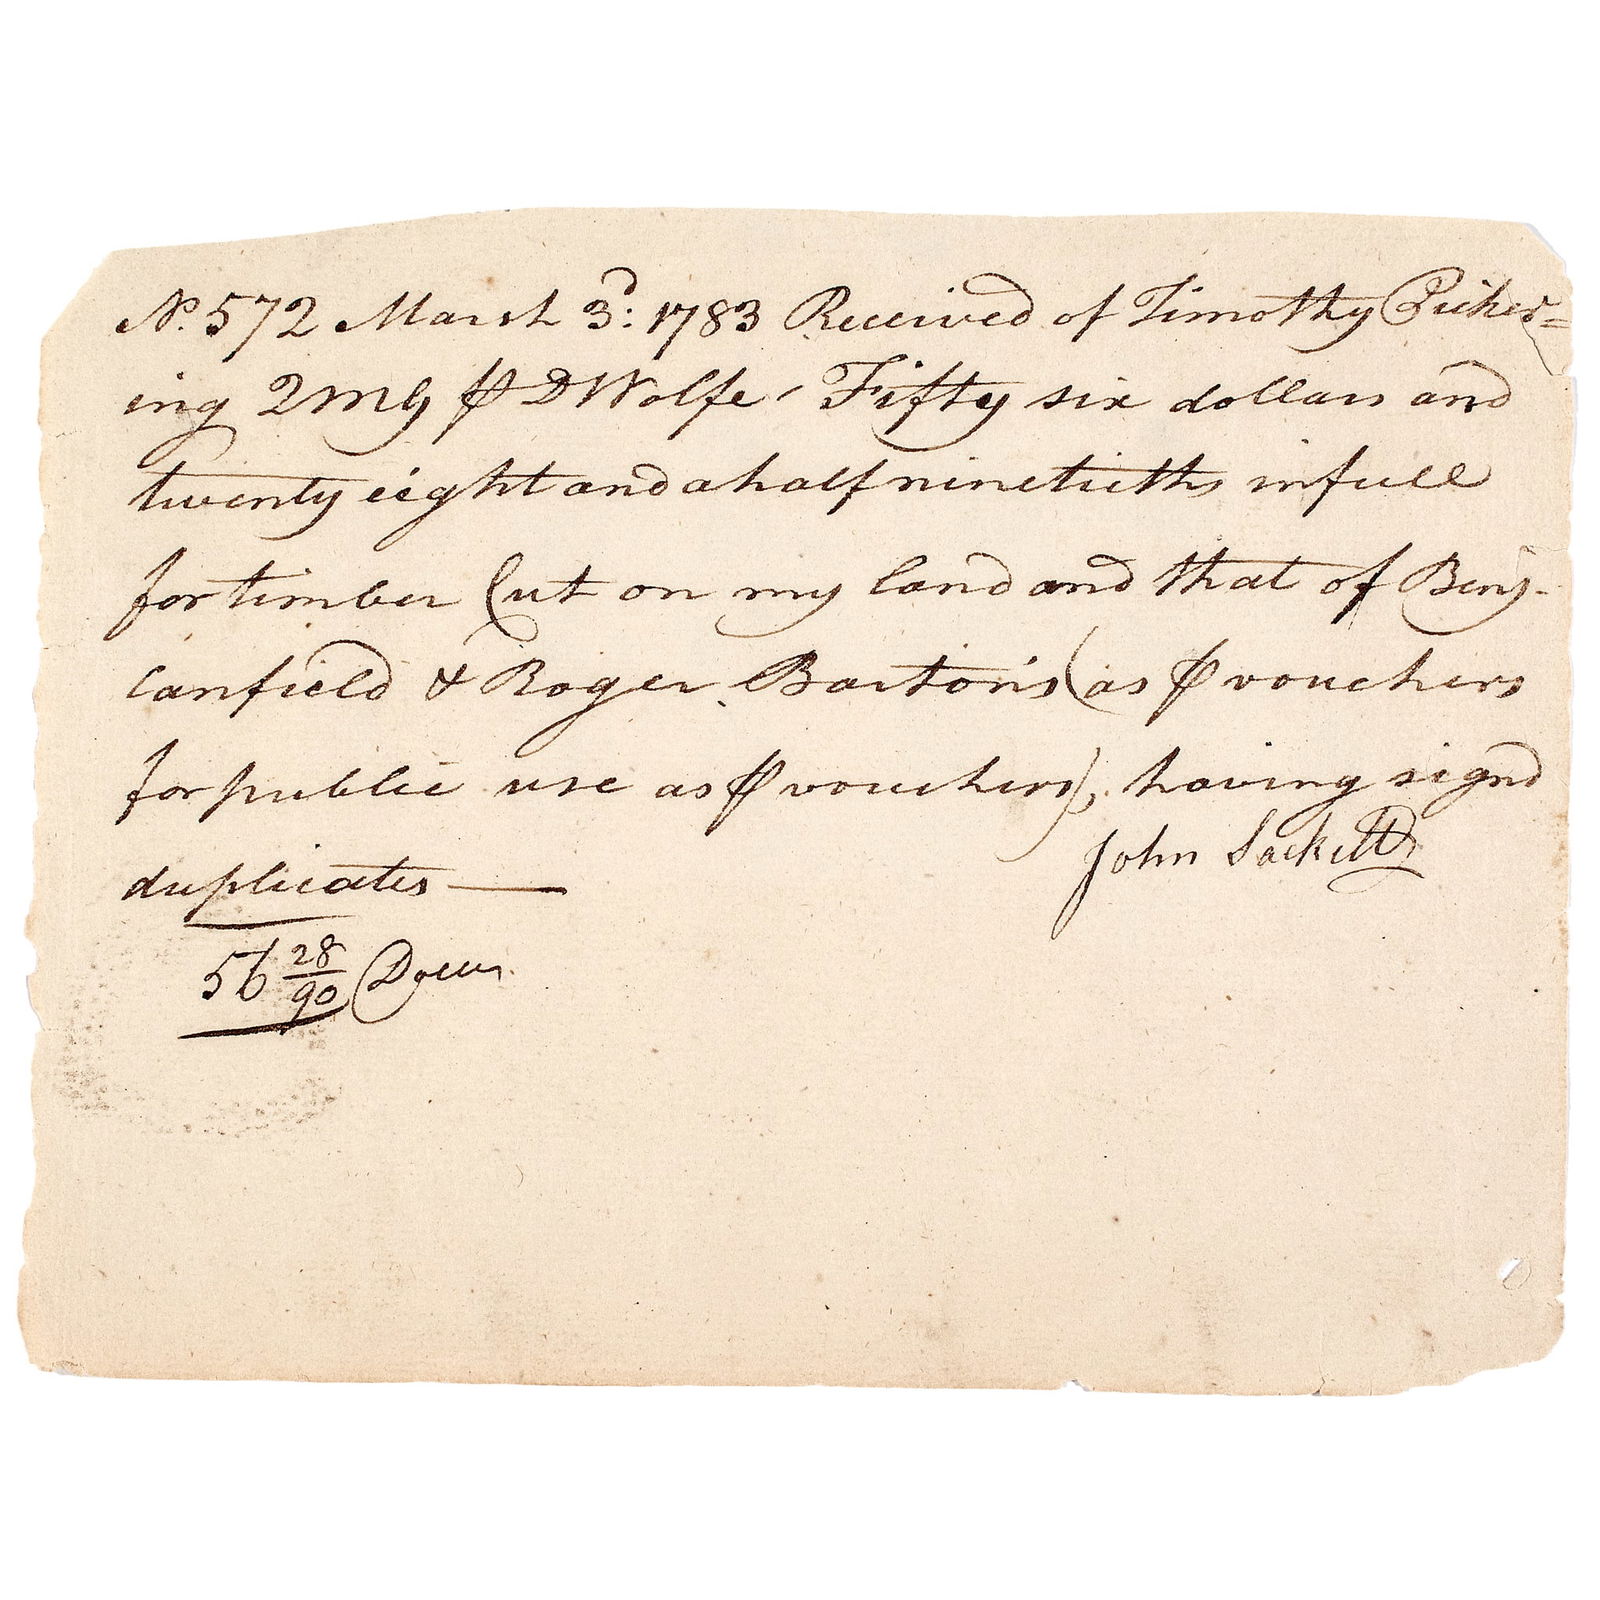 No. 572 March 3d: 1783 Received of Timothy Picker=
ing 2MG ⅌ DWolfe, Fifty six dollars and
twenty eight and a half ninetieths in full
for timber Cut on my land and that of Benj.
Canfield & Roger Barton's (as ⅌ vouchers
for public use as ⅌ vouchers), having signd
duplicates —
John Sackett
56 28/90 Dollars